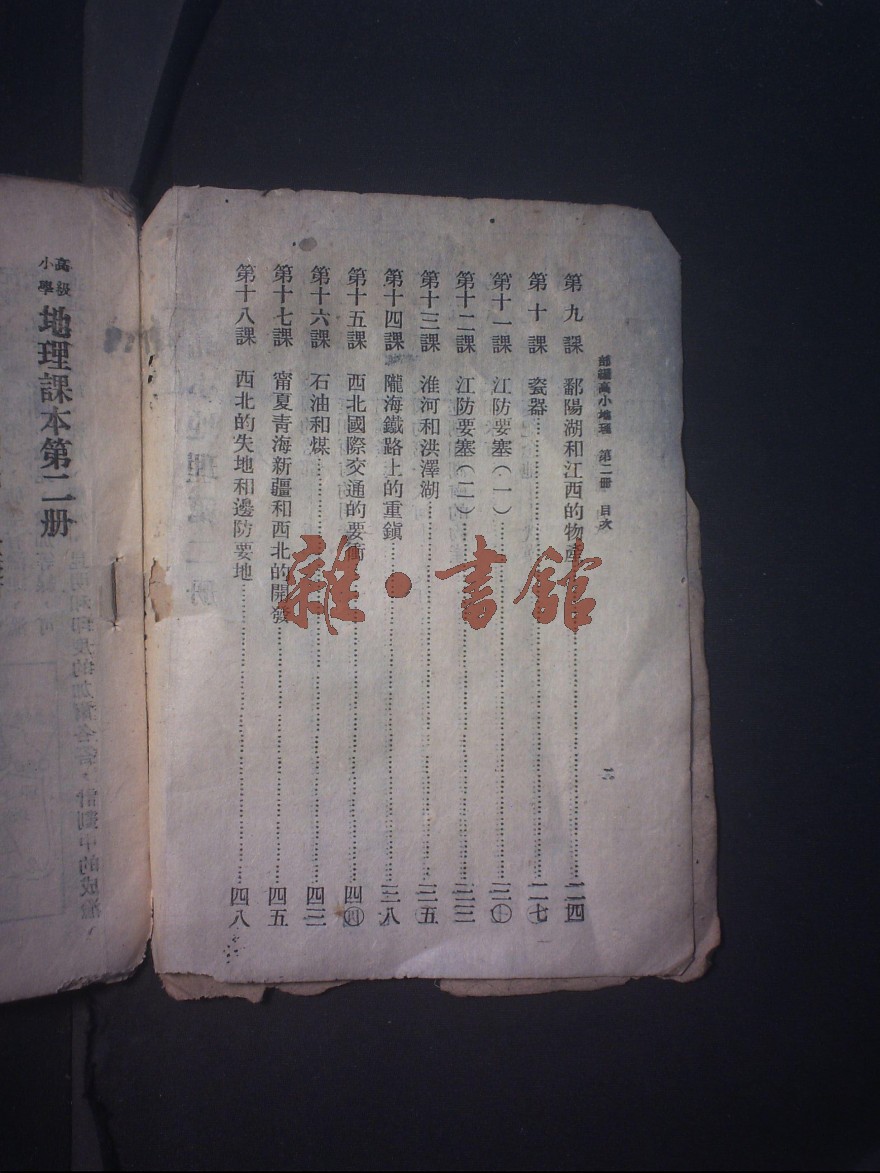 部編高小地理 第二冊 目次
二
第九課 鄱陽湖和江西的物產 二四
第十課 瓷器 二七
第十一課 江防要塞(一)
第十二課 江防要塞(二) 三三
第十三課 淮河和洪澤湖 三五
第十四課 隴海鐵路上的重鎮 三八
第十五課 西北國際交通的要衝
第十六課 石油和煤 四三
第十七課 甯夏青海新疆和西北的開發 四五
第十八課 西北的失地和邊防要地 四八
雜·書館
高級小學 地理課本第二册